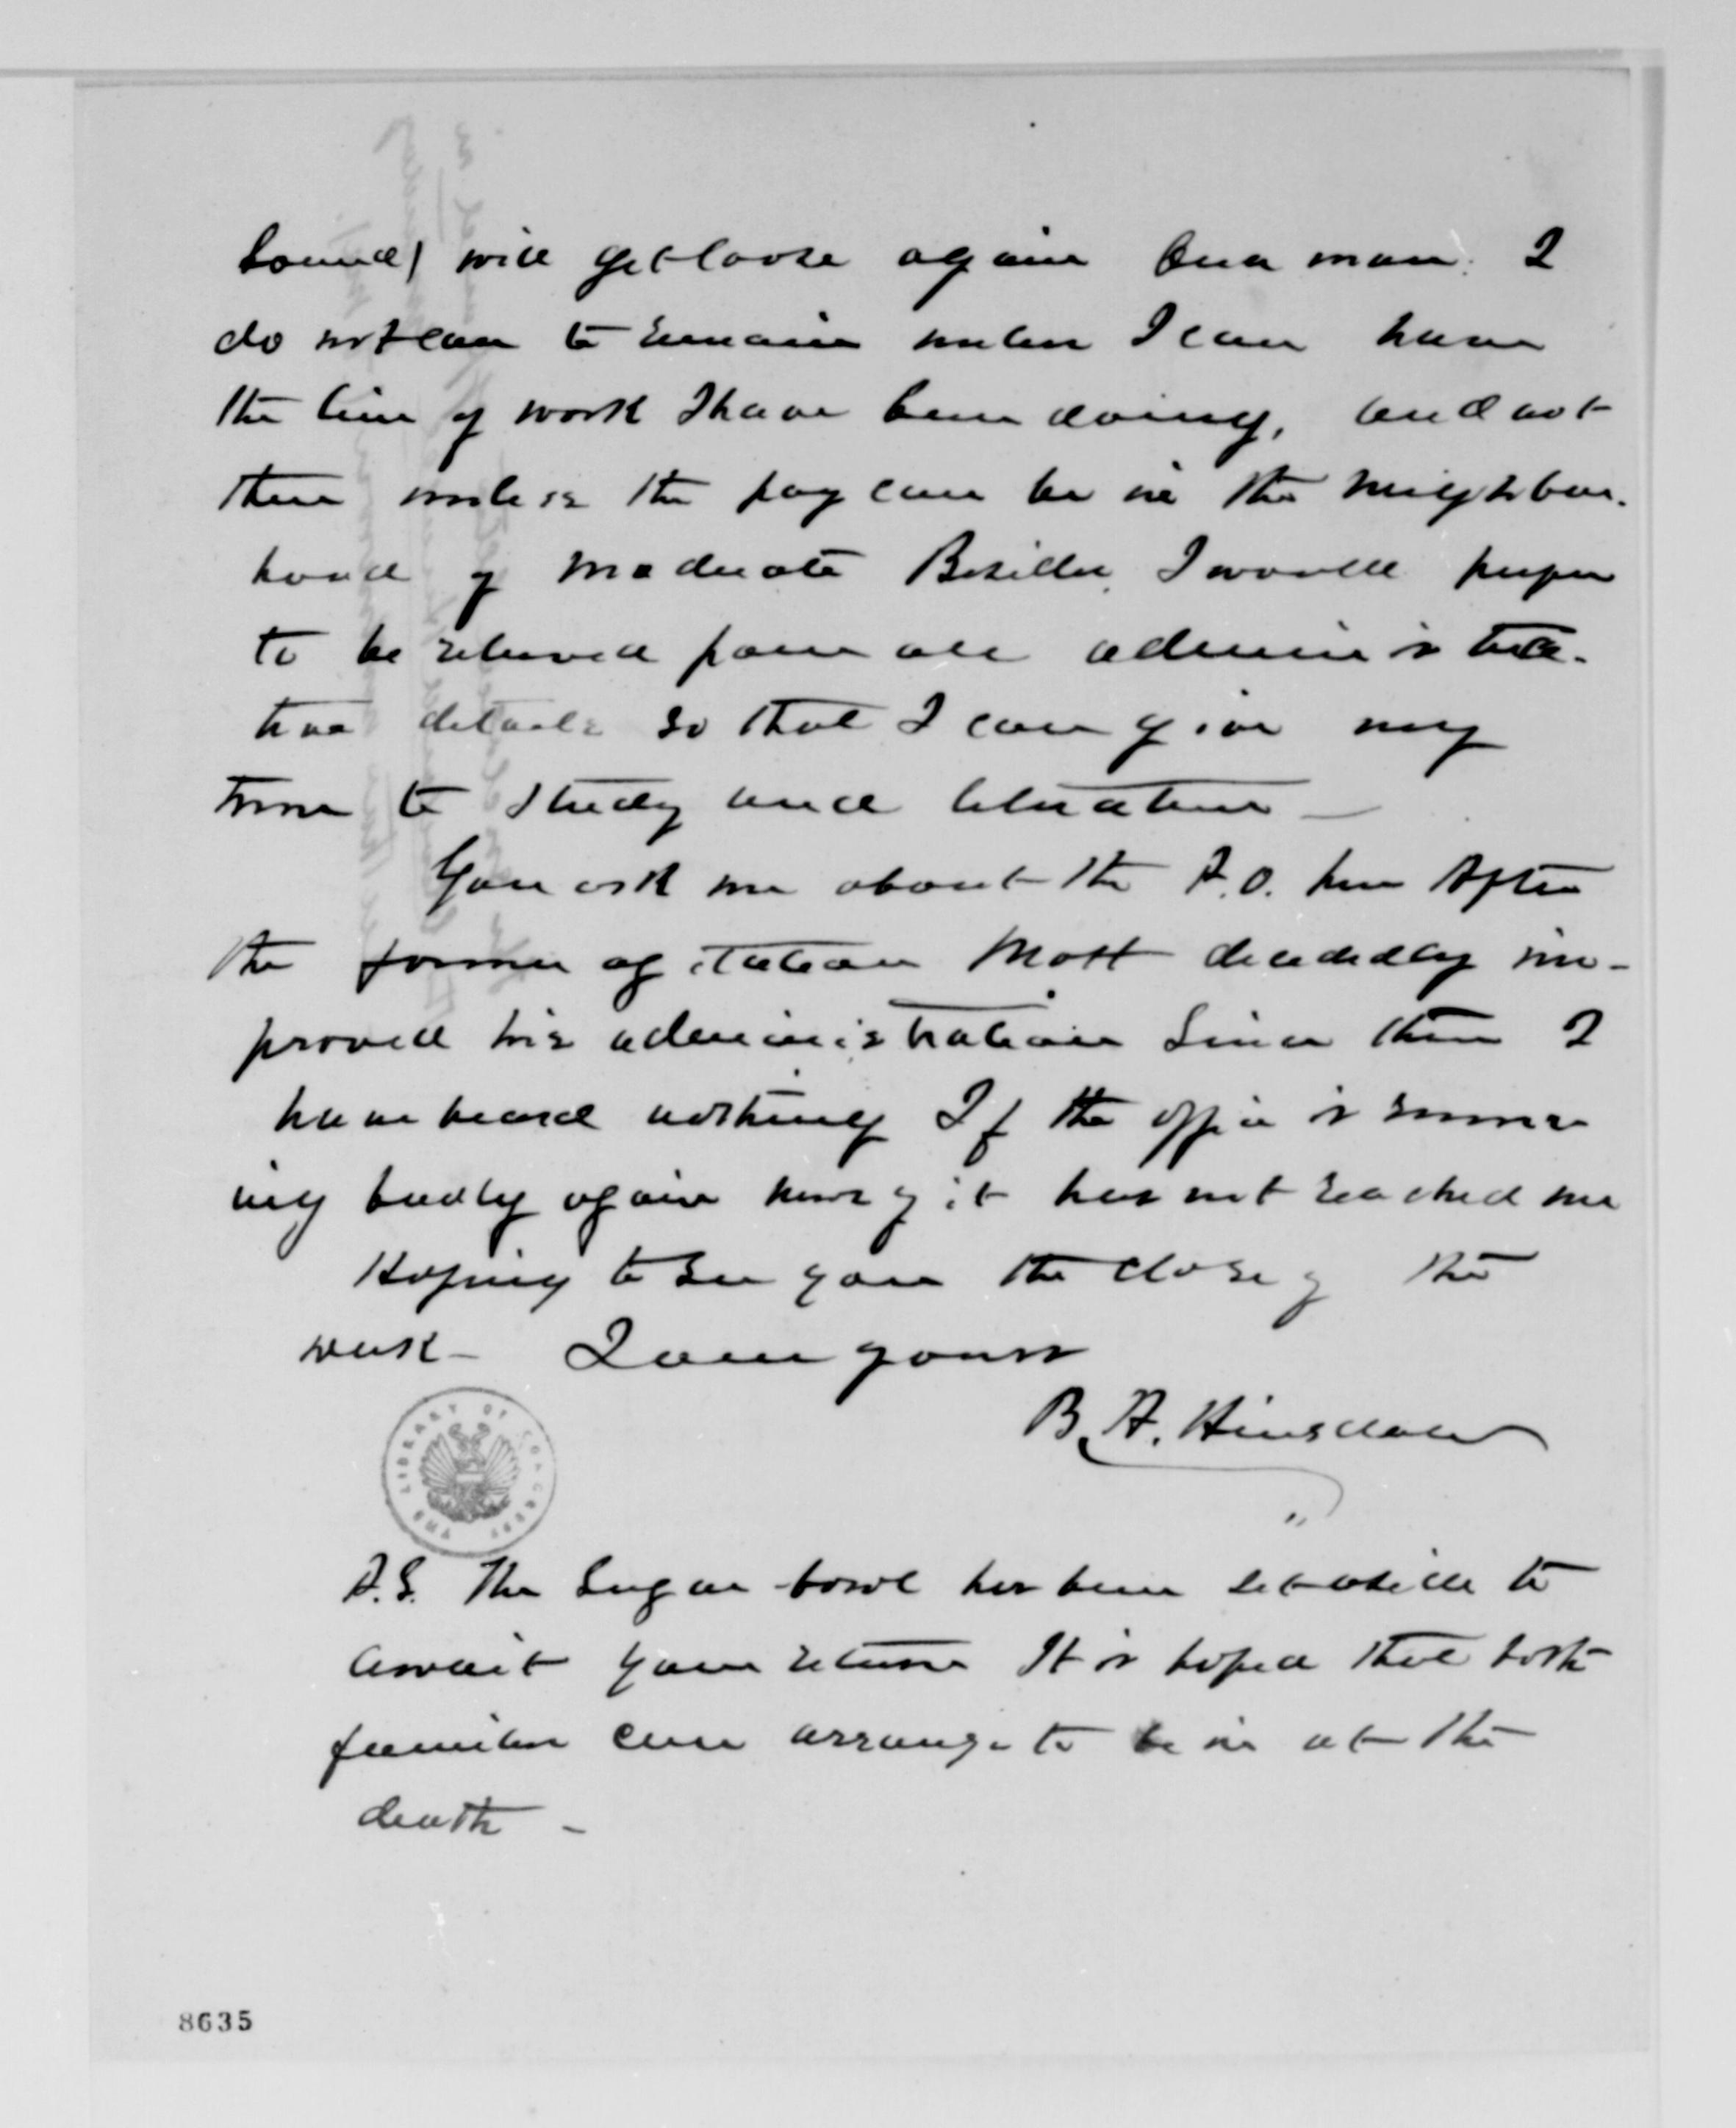 bound) will get loose again Qua man. I
do not care to remain unless I can have
the line of work I have been doing, and not
then unless the pay can be in the neighbor-
hood of moderate Besides, I would prefer
to be relieved from all administra-
tive details so that I can give my
time to study and literature —
You ask me about the P.O. here After
the former agitation Mott decidedly im-
proved his administration Since then I
have heard nothing If the office is runn-
ing badly again news of it has not reached me
Hoping to see you the close of the
week — I am yours
B. A. Hinsdale
THE LIBRARY OF CONGRESS
P.S. The Sugar-bowl has been set aside to
await your return It is hoped that both
families can arrange to be in at the
death —
8635